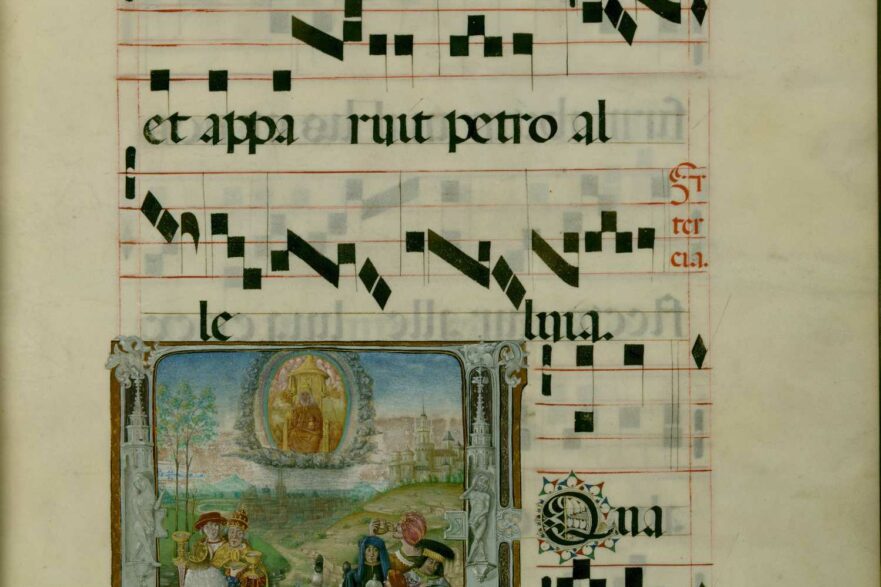 et appa ruit petro al
Fr
ter
cia.
le luia.
Qua